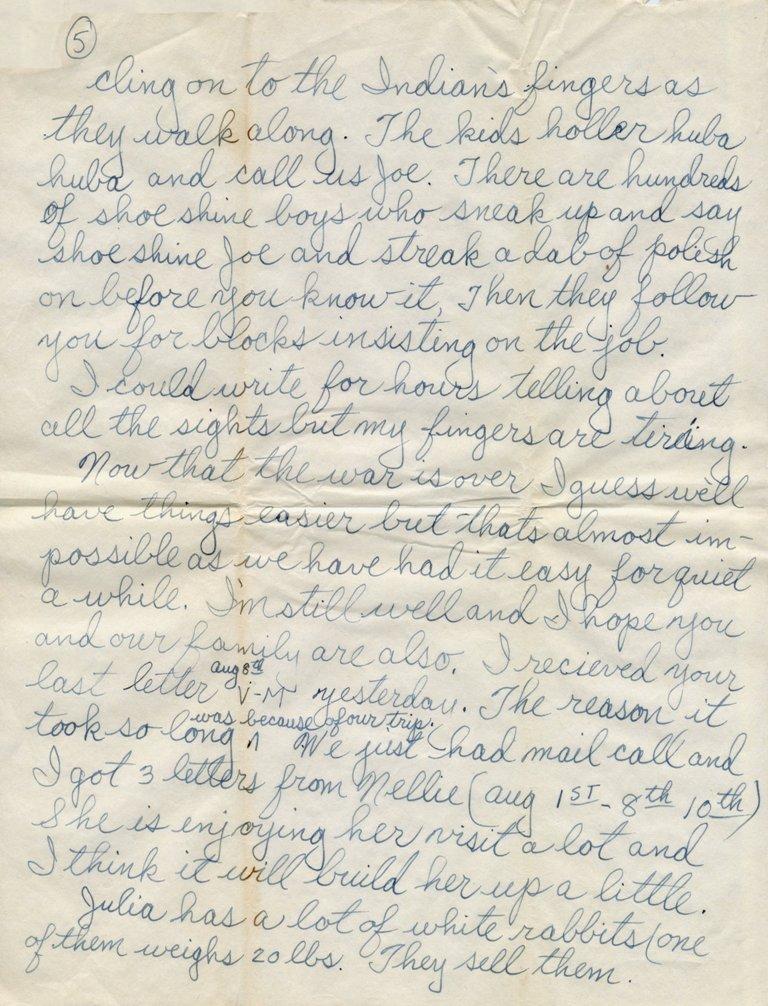 5
cling on to the Indian's fingers as
they walk along. The kids holler huba
huba and call us Joe. There are hundreds
of shoe shine boys who sneak up and say
shoe shine Joe and streak a dab of polish
on before you know it. Then they follow
you for blocks insisting on the job.
I could write for hours telling about
all the sights but my fingers are tireing.
Now that the war is over I guess we'll
have things easier but thats almost im-
possible as we have had it easy for quiet
a while. I'm still well and I hope you
and our family are also. I recieved your
aug 8th
last letter V-M yesterday. The reason it
was because of our trip.
took so long ^ We just had mail call and
I got 3 letters from Nellie (aug 1ST - 8th 10th)
She is enjoying her visit a lot and
I think it will build her up a little.
Julia has a lot of white rabbits (one
of them weighs 20 lbs. They sell them.